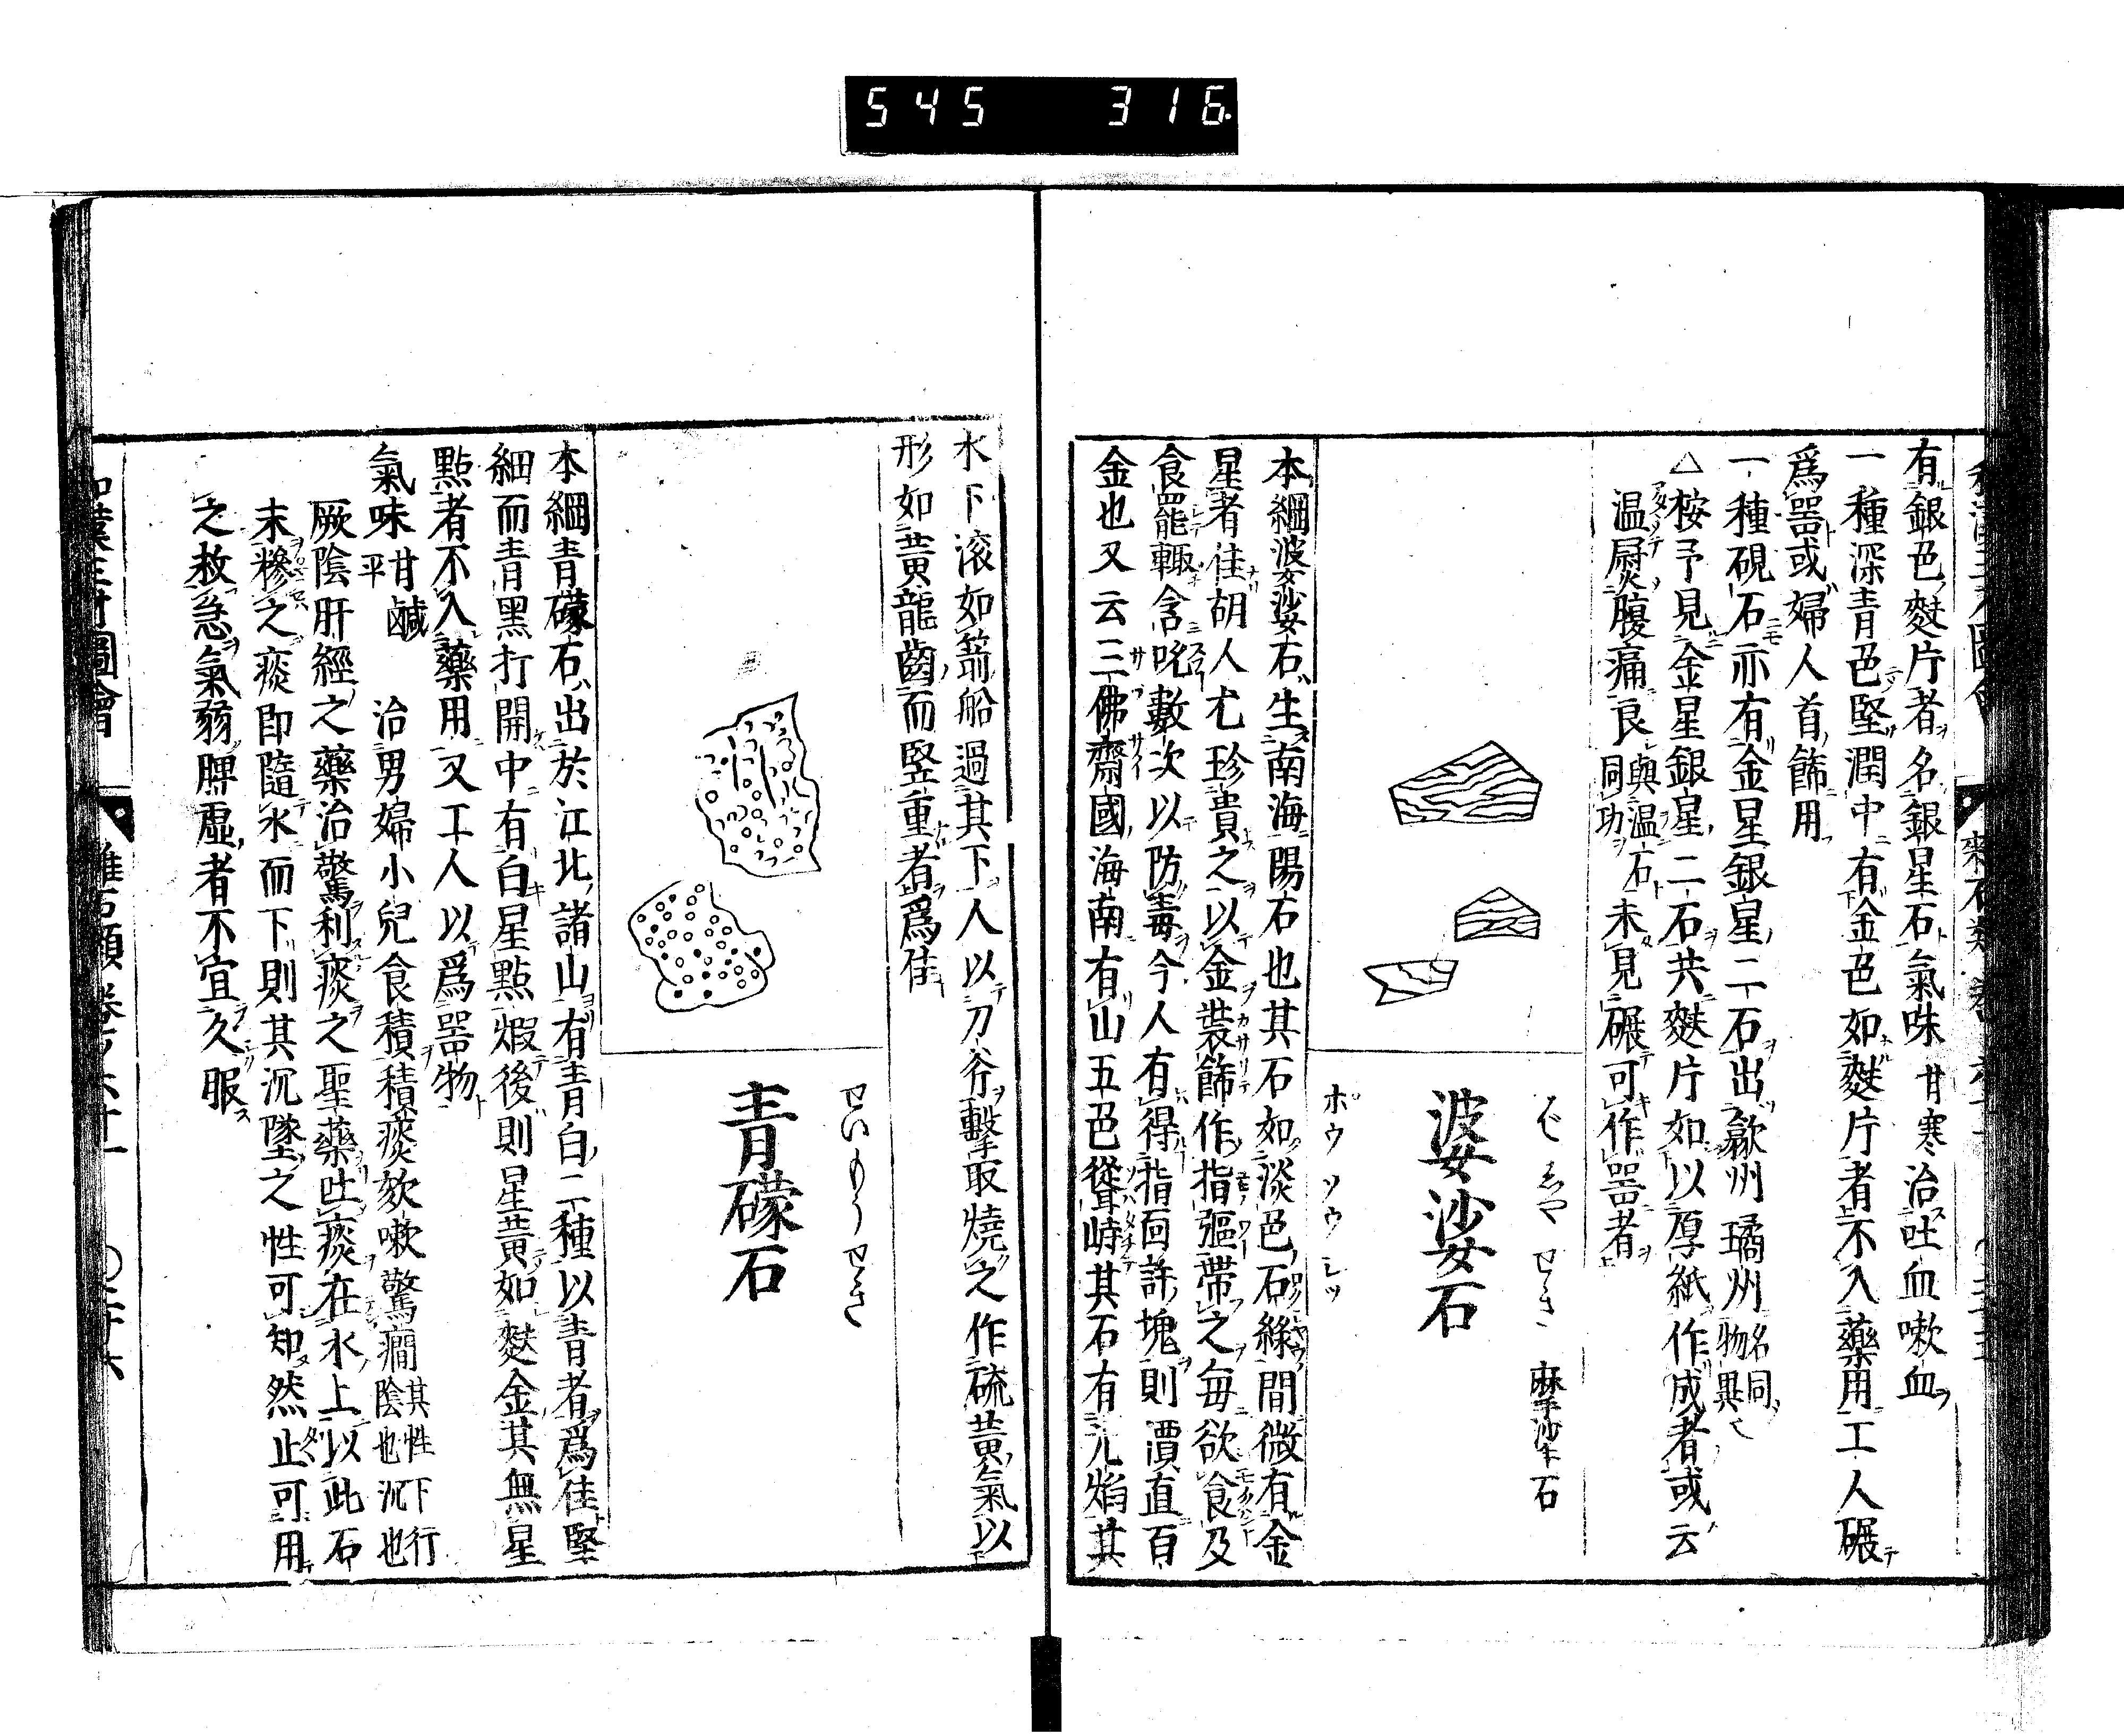 545 316
有銀色麩片者名銀星石氣味甘寒治吐血嗽血
一種深青色堅潤中有金色如麩片者不入藥用工人碾
爲噐或婦人首飾用
一種硯石亦有金星銀星二石出歙州璚州名同物異
△桉予見金星銀星二石共麩片如以厚紙作成者或云
温尉腹痛良與温石同功未見碾可作噐者
ばしやせき
麻手沙石
婆娑石
ポウソウシツ
本綱婆娑石生南海陽石也其石如淡色石綠間微有金
星者佳胡人尤珍貴之以金裝飾作指彄帶之每欲食及
食罷輙含吮數次以防毒今人有得指面許塊則價直百
金也又云三佛齋國海南有山五色聳峙其石有光焰其
水下滚如箭船過其下人以刀斧擊取燒之作硫黃氣以
形如黃龍齒而堅重者爲佳
せいもうせき
青礞石
本綱青礞石出於江北諸山有青白二種以青者爲佳堅
細而青黑打開中有白星點煆後則星黃如麩金其無星
點者不入藥用又工人以爲噐物
氣味甘鹹平 治男婦小兒食積積痰欬嗽驚癇其性下行陰也沉也
厥陰肝經之藥治驚利痰之聖藥吐痰在水上以此石
末糝之痰即隨水而下則其沉墜之性可知然止可用
之救急氣弱脾虛者不宜久服
和漢三才圖會 雜石類 卷ノ六十一 〇三十六